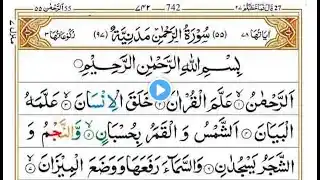 742
سُوْرَةُ الرَّحْمٰنِ مَدَنِيَّةٌ (۵۵) (۹۷)
بِسْمِ اللّٰهِ الرَّحْمٰنِ الرَّحِيْمِ
اَلرَّحْمٰنُ عَلَّمَ الْقُرْاٰنَ خَلَقَ الْاِنْسَانَ عَلَّمَهُ
الْبَيَانَ اَلشَّمْسُ وَ الْقَمَرُ بِحُسْبَانٍ وَّالنَّجْمُ وَ
الشَّجَرُ يَسْجُدٰنِ وَالسَّمَآءَ رَفَعَهَا وَوَضَعَ الْمِيْزَانَ